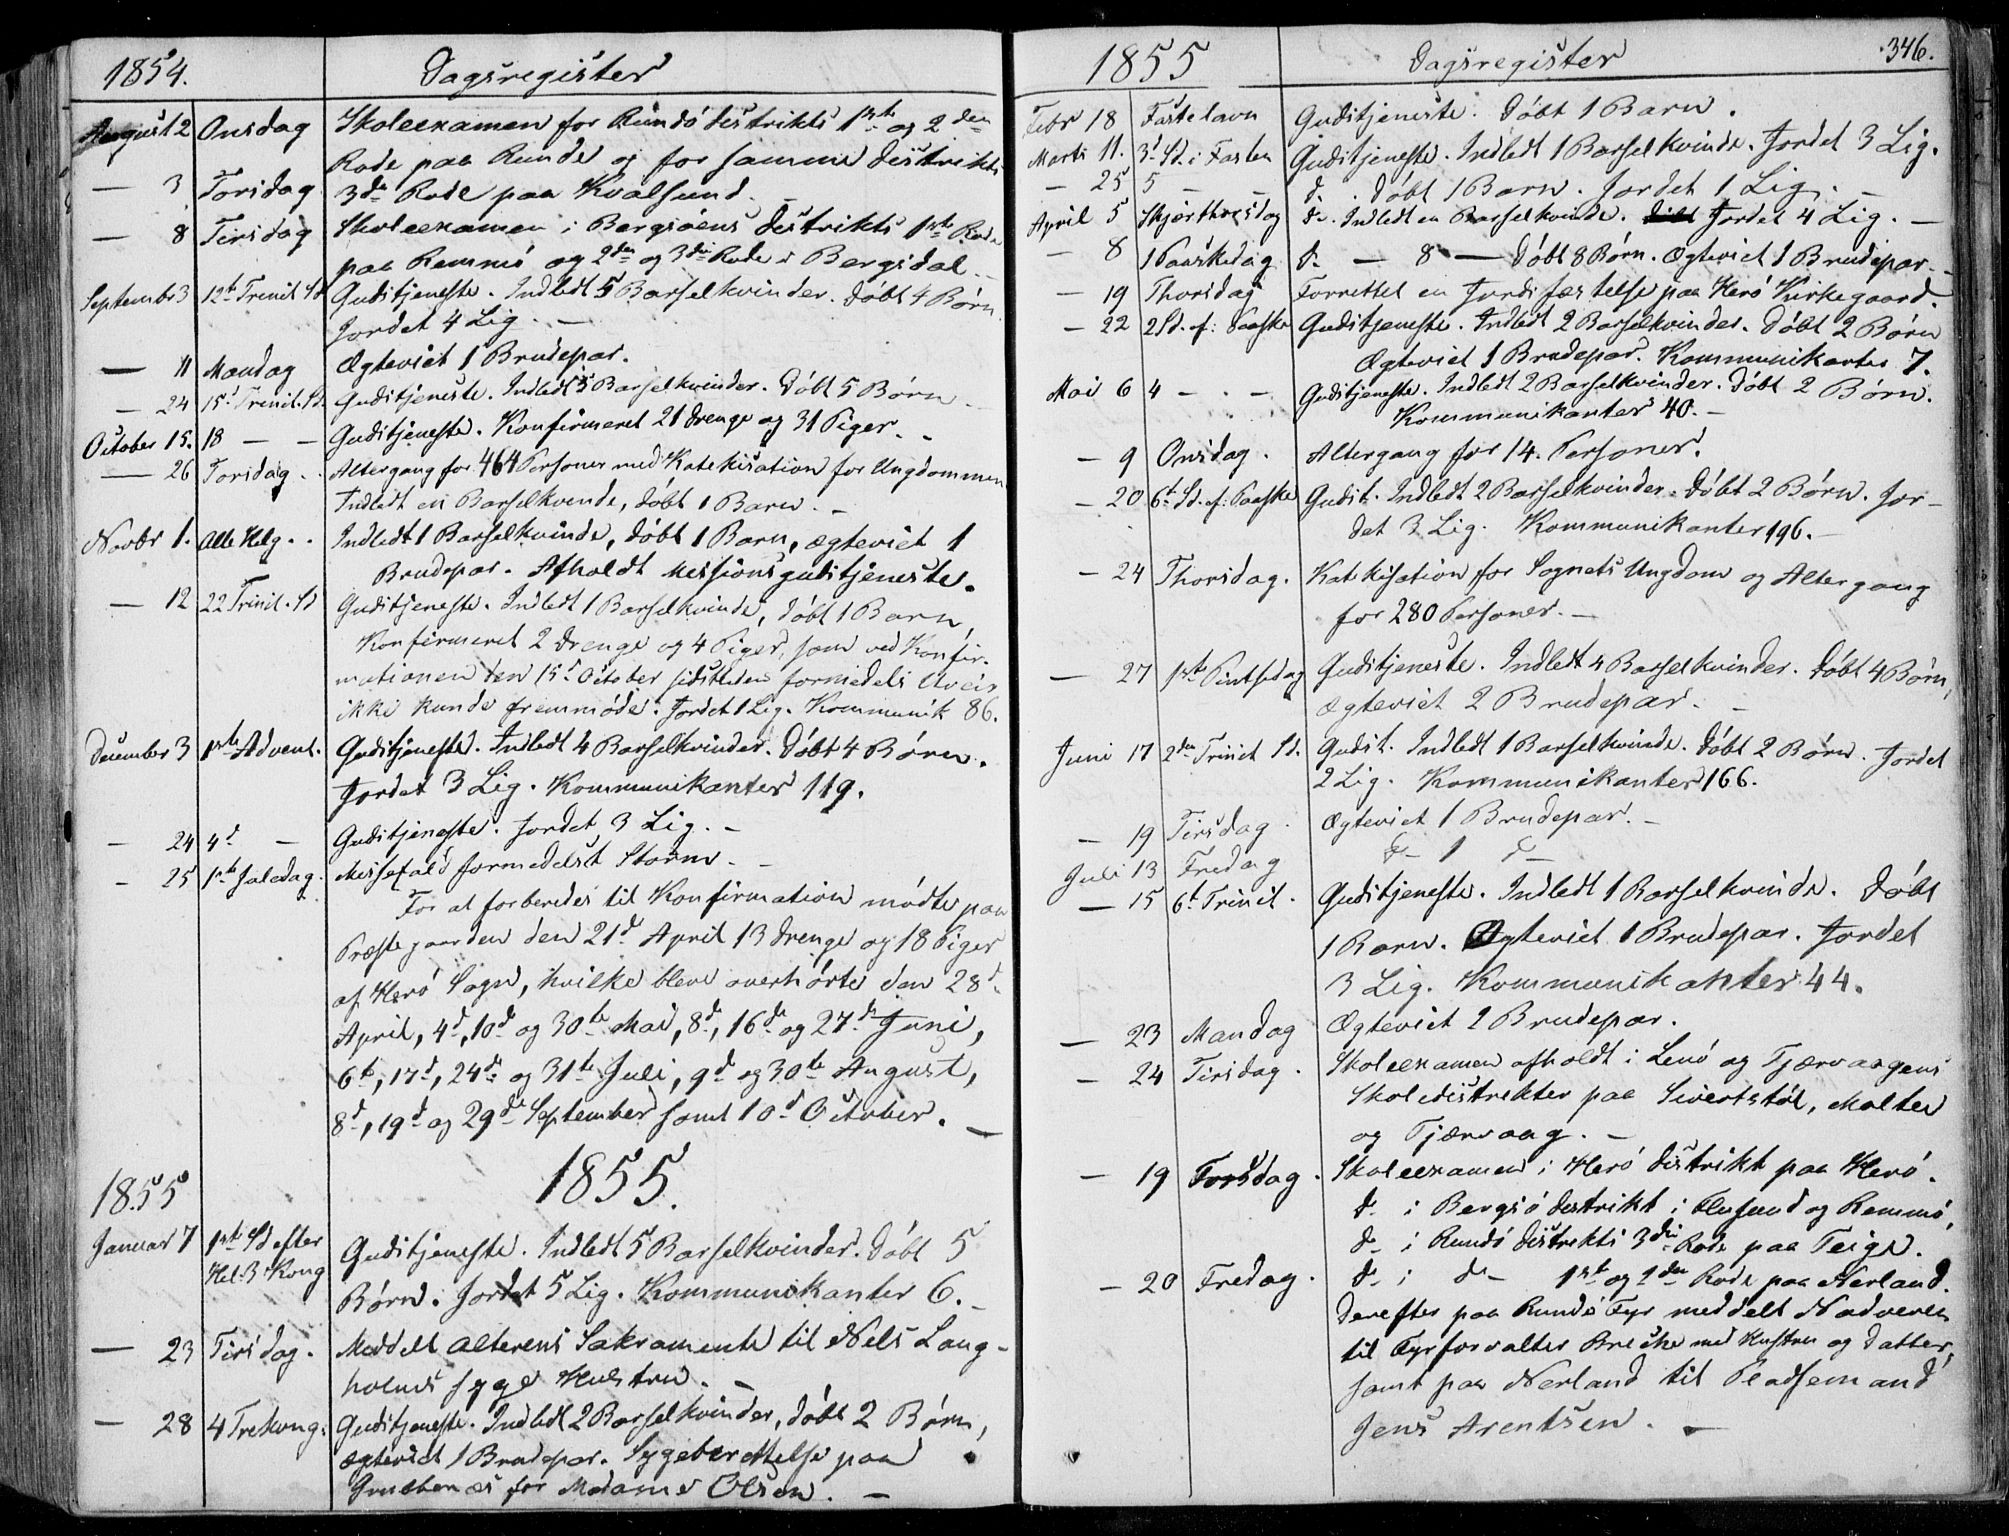 1854. Dagsregister
August 2 Onsdag Skoleexamen for Rundö Destrikts 1ste og 2den
Rode paa Runde og for samme Destrikts
— 3 Torsdag 3die Rode paa Kvalsund. —
— 8 Tirsdag Skoleexamen i Bergsöens Destrikts 1ste Rode
paa Remmö og 2den og 3die Rode i Bergsdal. —
September 3 12te Trinit. Sd Gudstjeneste. Indledt 5 Barselkvinder. Döbt 4 Börn.
Jordet 4 Lig. —
— 11 Mandag Ægteviet 1 Brudepar.
— 24 15d Trinit. Sd. Gudstjeneste. Indledt 5 Barselkvinder. Döbt 5 Börn. —
October 15. 18 — — Gudstjeneste. Konfirmeret 21 Drenge og 31 Piger. —
— 26 Torsdag. Altergang for 464 Personer med Katekisation for Ungdommen
Indledt en Barselkvinde, döbt 1 Barn. —
Novbr 1. Alle Helg. Indledt 1 Barselkvinde, döbt 1 Barn, ægteviet 1
Brudepar. Afholdt Missionsgudstjeneste.
— 12 22 Trinit. Sd Gudstjeneste. Indledt 1 Barselkvinde, döbt 1 Barn,
Konfirmeret 2 Drenge og 4 Piger, som ved Konfir-
mationen den 15d October sidstleden formedels Uveir
ikke kunde fremmöde. Jordet 1 Lig. Kommunik 86.
December 3 1ste Advent. Gudstjeneste. Indledt 4 Barselkvinder. Döbt 4 Börn.
Jordet 3 Lig. Kommunikanter 119.
— 24 4d — Gudstjeneste. Jordet 3 Lig. —
— 25 1ste Juledag. Messefald formedelst Storm. —
For at forberedes til Konfirmation mödte paa
Præstegaarden den 21d April 13 Drenge og 18 Piger
af Herö Sogn, hvilke bleve overhörte den 28d
April, 4d, 10d og 30te Mai, 8d, 16de og 27de Juni,
6t, 17d, 24de og 31te Juli, 9d og 30te August,
8d, 19d og 29de September samt 10d October. —
1855 1855.
Januar 7 1ste Sd efter Gudstjeneste. Indledt 5 Barselkvinder. Döbt 5
Hel. 3 Kong Börn. Jordet 5 Lig. Kommunikanter 6. —
— 23 Tirsdag. Meddelt Alterens Sakramente til Nels Lang-
holms syge Hustru. —
— 28 4 Trekong. Gudstjeneste. Indledt 2 Barselkvinder, döbt 2 Börn,
ægteviet 1 Brudepar. Sygeberettelse paa
for Madame Olsen. —
1855 Dagsregister 346.
Febr 18 Fastelavn Gudstjeneste. Döbt 1 Barn.
Marts 11. 3d Sd. i Fasten Gudstjeneste. Indledt 1 Barselkvinde. Jordet 3 Lig.
— 25 5 — — do. Döbt 1 Barn. Jordet 1 Lig. —
April 5 Skjærthorsdag do. Indledt en Barselkvinde. Jordet 4 Lig. —
— 8 1 Paaskedag do — 8 — Döbt 8 Börn. Ægteviet 1 Brudepar. —
— 19 Thorsdag Forrettet en Jordfæstelse paa Herö Kirkegaard.
— 22 2 Sd. ef: Paaske Gudstjeneste. Indledt 2 Barselkvinder. Döbt 2 Börn
Ægteviet 1 Brudepar. Kommunikanter 7.
Mai 6 4 — — Gudstjeneste. Indledt 2 Barselkvinder. Döbt 2 Börn.
Kommunikanter 40. —
— 9 Onsdag. Altergang for 14. Personer.
— 20 6te Sd. ef: Paaske Gudst. Indledt 2 Barselkvinder. Döbt 2 Börn. Jor-
det 3 Lig. Kommunikanter 196. —
— 24 Thorsdag. Katekisation for Sognets Ungdom og Altergang
for 280 Personer. —
— 27 1ste Pintsedag Gudstjeneste. Indledt 4 Barselkvinder. Döbt 4 Börn,
Ægteviet 2 Brudepar. —
Juni 17 2den Trinit Sd. Gudst. Indledt 1 Barselkvinde. Döbt 2 Börn. Jordet
2 Lig. Kommunikanter 166.
— 19 Tirsdag. Ægteviet 1 Brudepar. —
Juli 13 Fredag do 1 do
— 15 6te Trinit. Gudstjeneste. Indledt 1 Barselkvinde. Döbt
1 Barn. Ægteviet 1 Brudepar. Jordet
3 Lig. Kommunikanter 44.
— 23 Mandag Ægteviet 2 Brudepar.
— 24 Tirsdag. Skoleexamen afholdt i Lenö og Tjærvaagens
Skoledistrekter paa Sivertstöl, Molter
og Tjærvaag. —
— 19 Torsdag. Skoleexamen i Herö Distrikt paa Herö.
do i Bergsö Destrikt i Flusund og Remmö,
do i Rundö Distrikts 3die Rode paa Teige.
— 20 Fredag. do i do — 1ste og 2den Rode paa Nerland.
Derefter paa Rundö Fyr meddelt Nadveren
til Fyrforvalter med Hustru og Datter,
samt paa Nerland til Pladsemand
Jens Arentsen. —